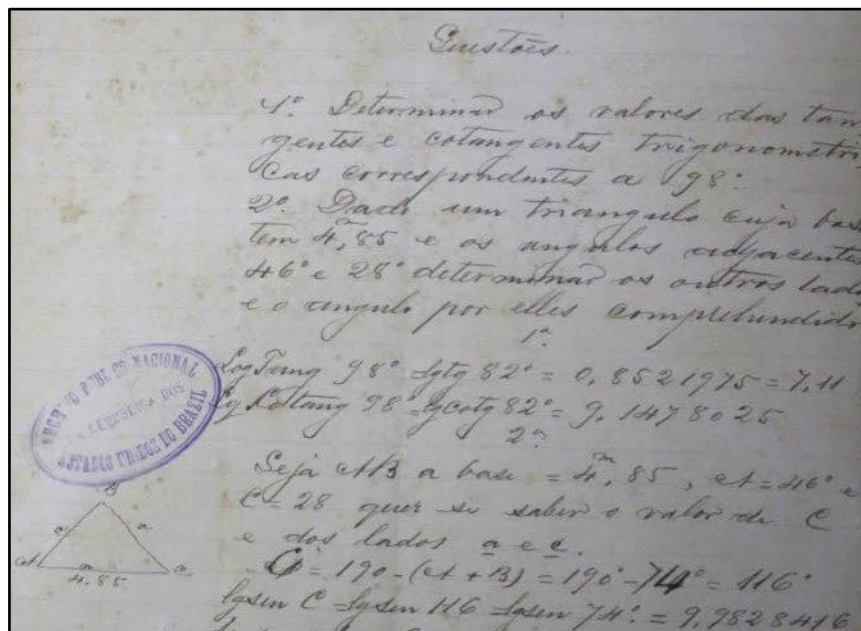 Questões.
1ª. Determinar os valores das tan
gentes e cotangentes trigonometri
cas correspondentes a 98°.
2ª. Dado um triangulo cuja base
tem 4,ᵐ85 e os angulos adjacentes
46° e 28° determinar os outros lado
e o angulo por elles comprehendido
1ª.
Log Tang 98° = lg tg 82° = 0,8521975 = 7,11
Lg Cotang 98 = lg cotg 82° = 9,1478025
2ª
Seja AB a base = 4,ᵐ85, A = 46° e
C = 28 quer se saber o valor de C
e dos lados a e c.
C = 190 - (A + B) = 190° - 74° = 116°
lg sen C = lg sen 116 = lg sen 74°. = 9,9828416
ARCHIVO PUBLICO NACIONAL
REPUBLICA DOS
ESTADOS UNIDOS DO BRASIL
B
c a
A
4,85